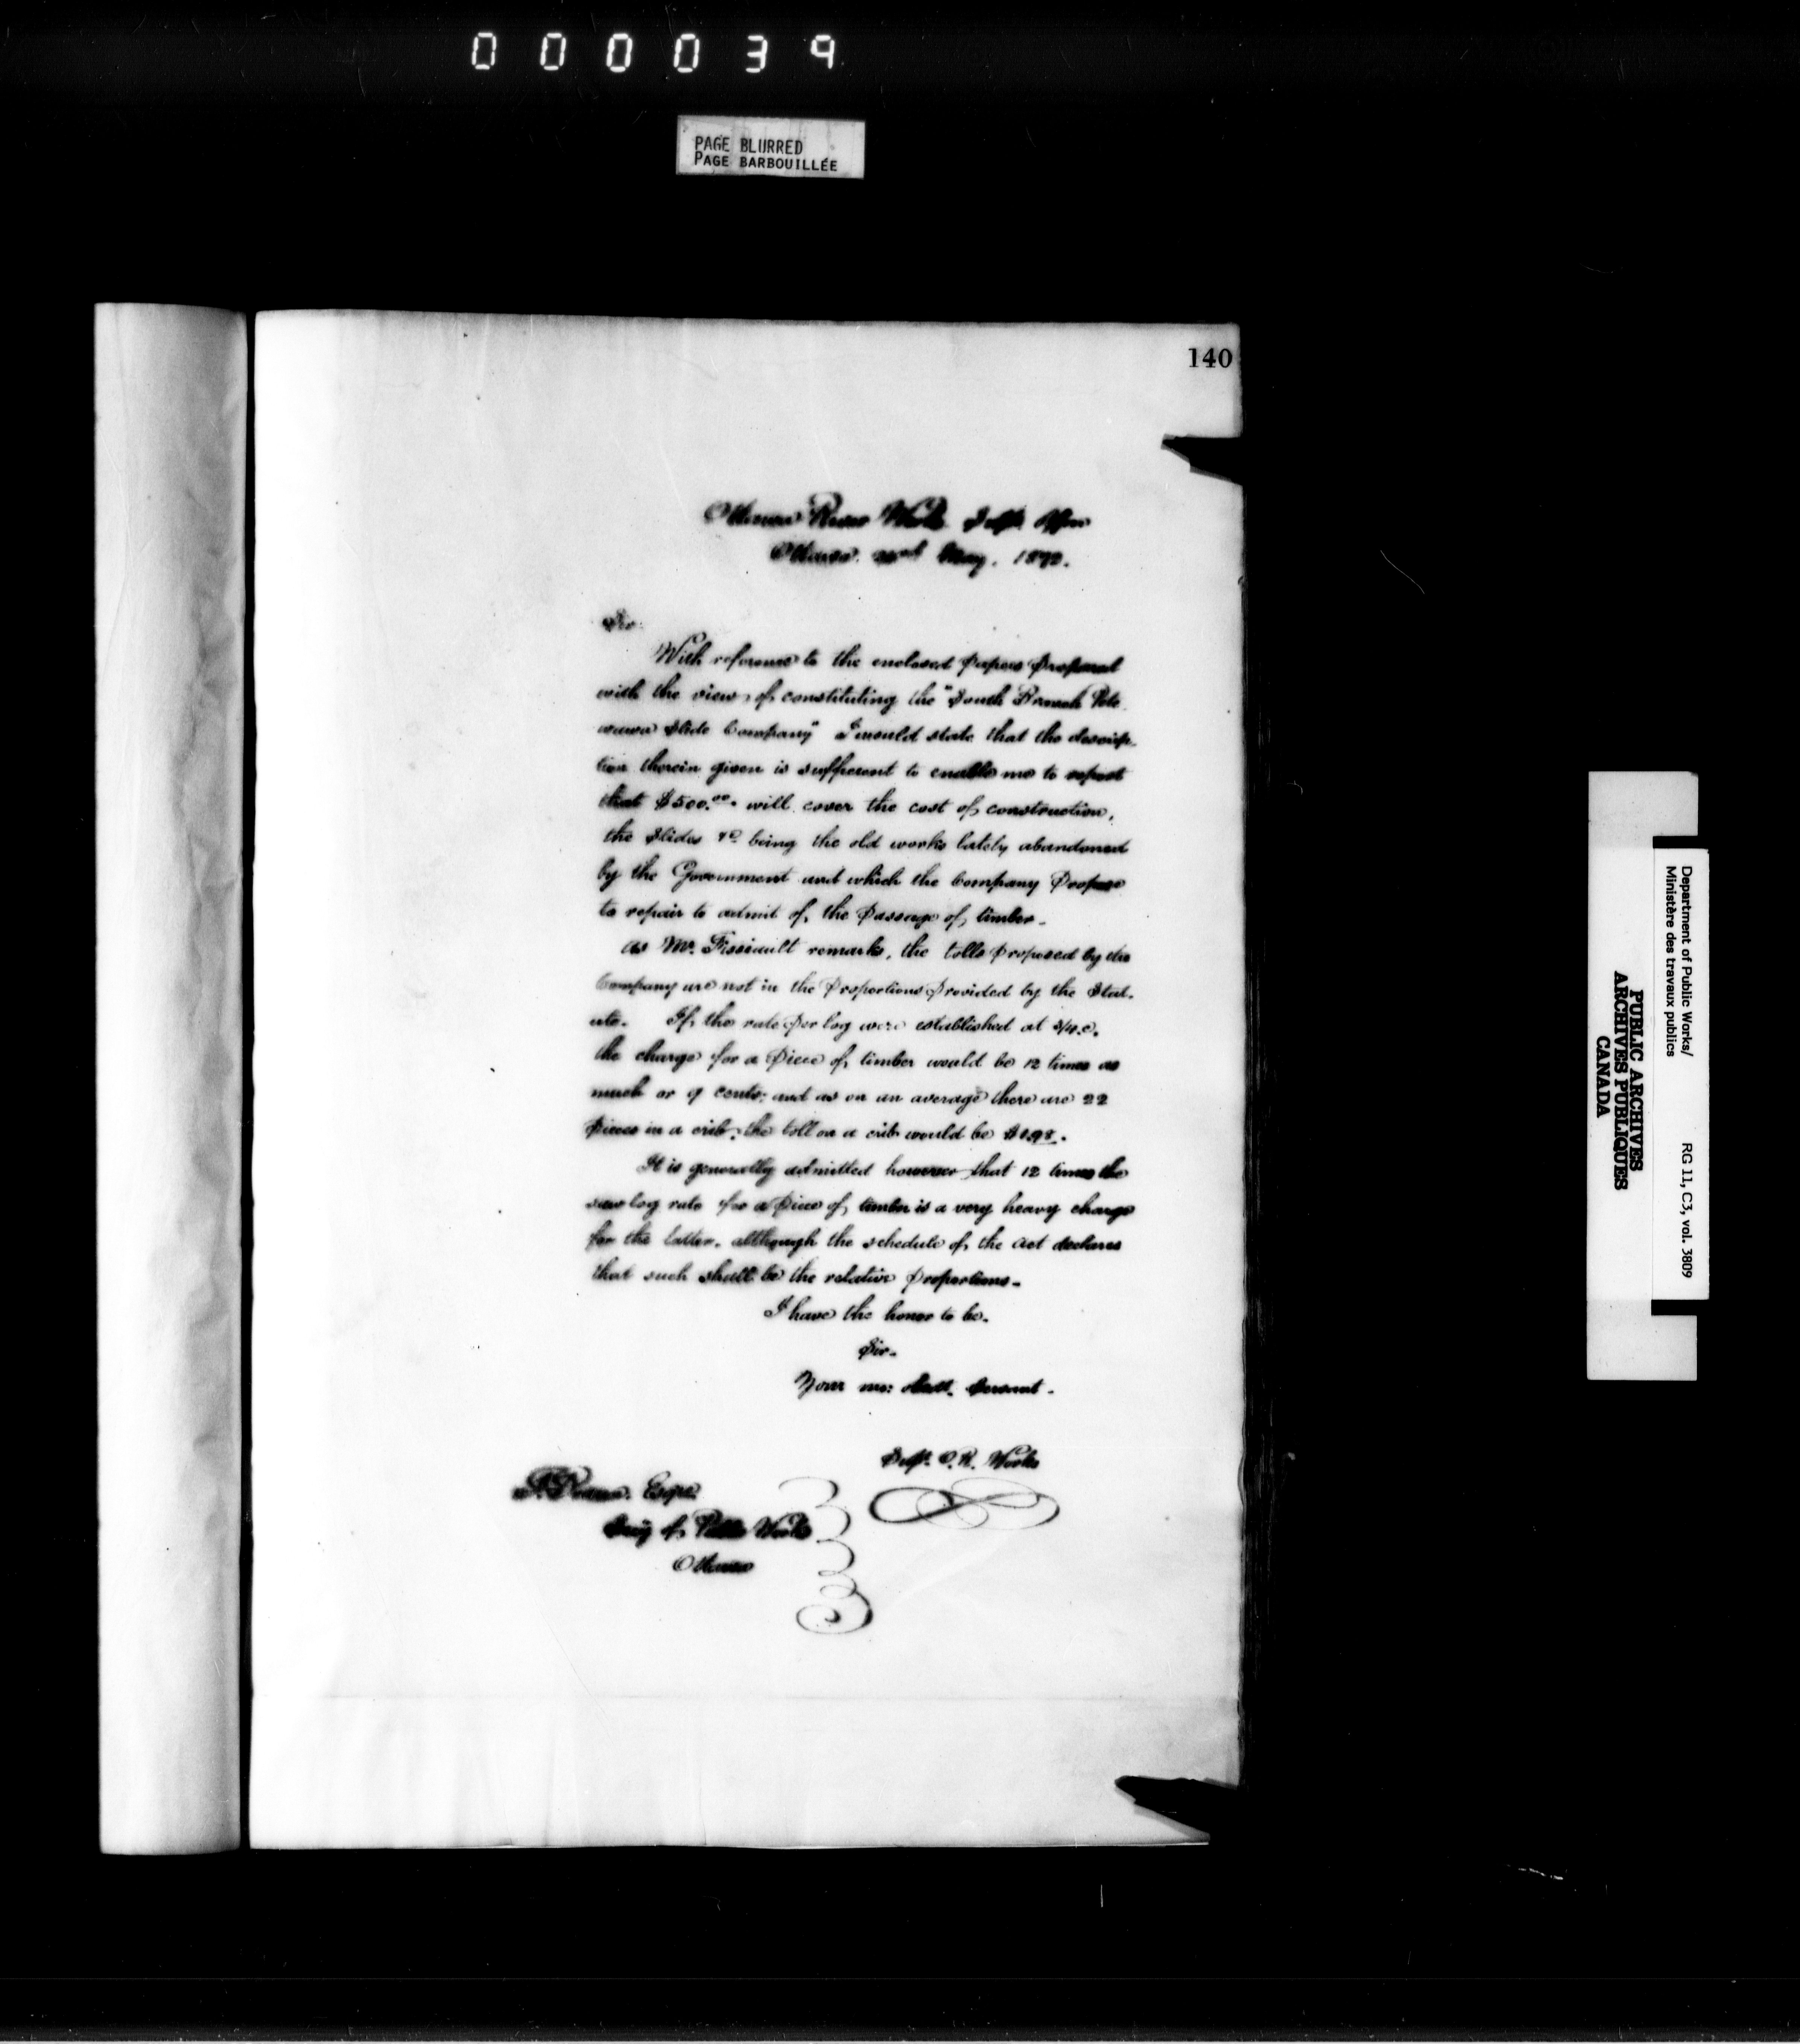 000039
PAGE BLURRED
PAGE BARBOUILLÉE
140
Ottawa River Works Supts. Office
Ottawa. 22nd May. 1872.
Sir.
With reference to the enclosed papers prepared
with the view of constituting the "South Branch Pete
wawa Slide Company" I would state that the descrip-
tion therein given is sufficient to enable me to report
that $500.00. will cover the cost of construction,
the Slides &c being the old works lately abandoned
by the Government and which the Company propose
to repair to admit of, the passage of timber-
As Mr. Fissiault remarks, the tolls proposed by the
Company are not in the proportions provided by the Stat-
ute. If, the rate per log were established at 3/4 c.
the charge for a piece of timber would be 12 times as
much or 9 cents; and as on an average there are 22
pieces in a crib, the toll on a crib would be $1.98.
It is generally admitted however that 12 times the
saw log rate for a piece of timber is a very heavy charge
for the latter. although the schedule of the Act declares
that such shall be the relative proportions-
I have the honor to be.
Sir.
Your mo: obedt. Servant.
Supt. O.R. Works
F. Braun. Esqre.
Secy of Public Works
Ottawa
Department of Public Works/
Ministère des travaux publics
RG 11, C3, vol. 3809
PUBLIC ARCHIVES
ARCHIVES PUBLIQUES
CANADA